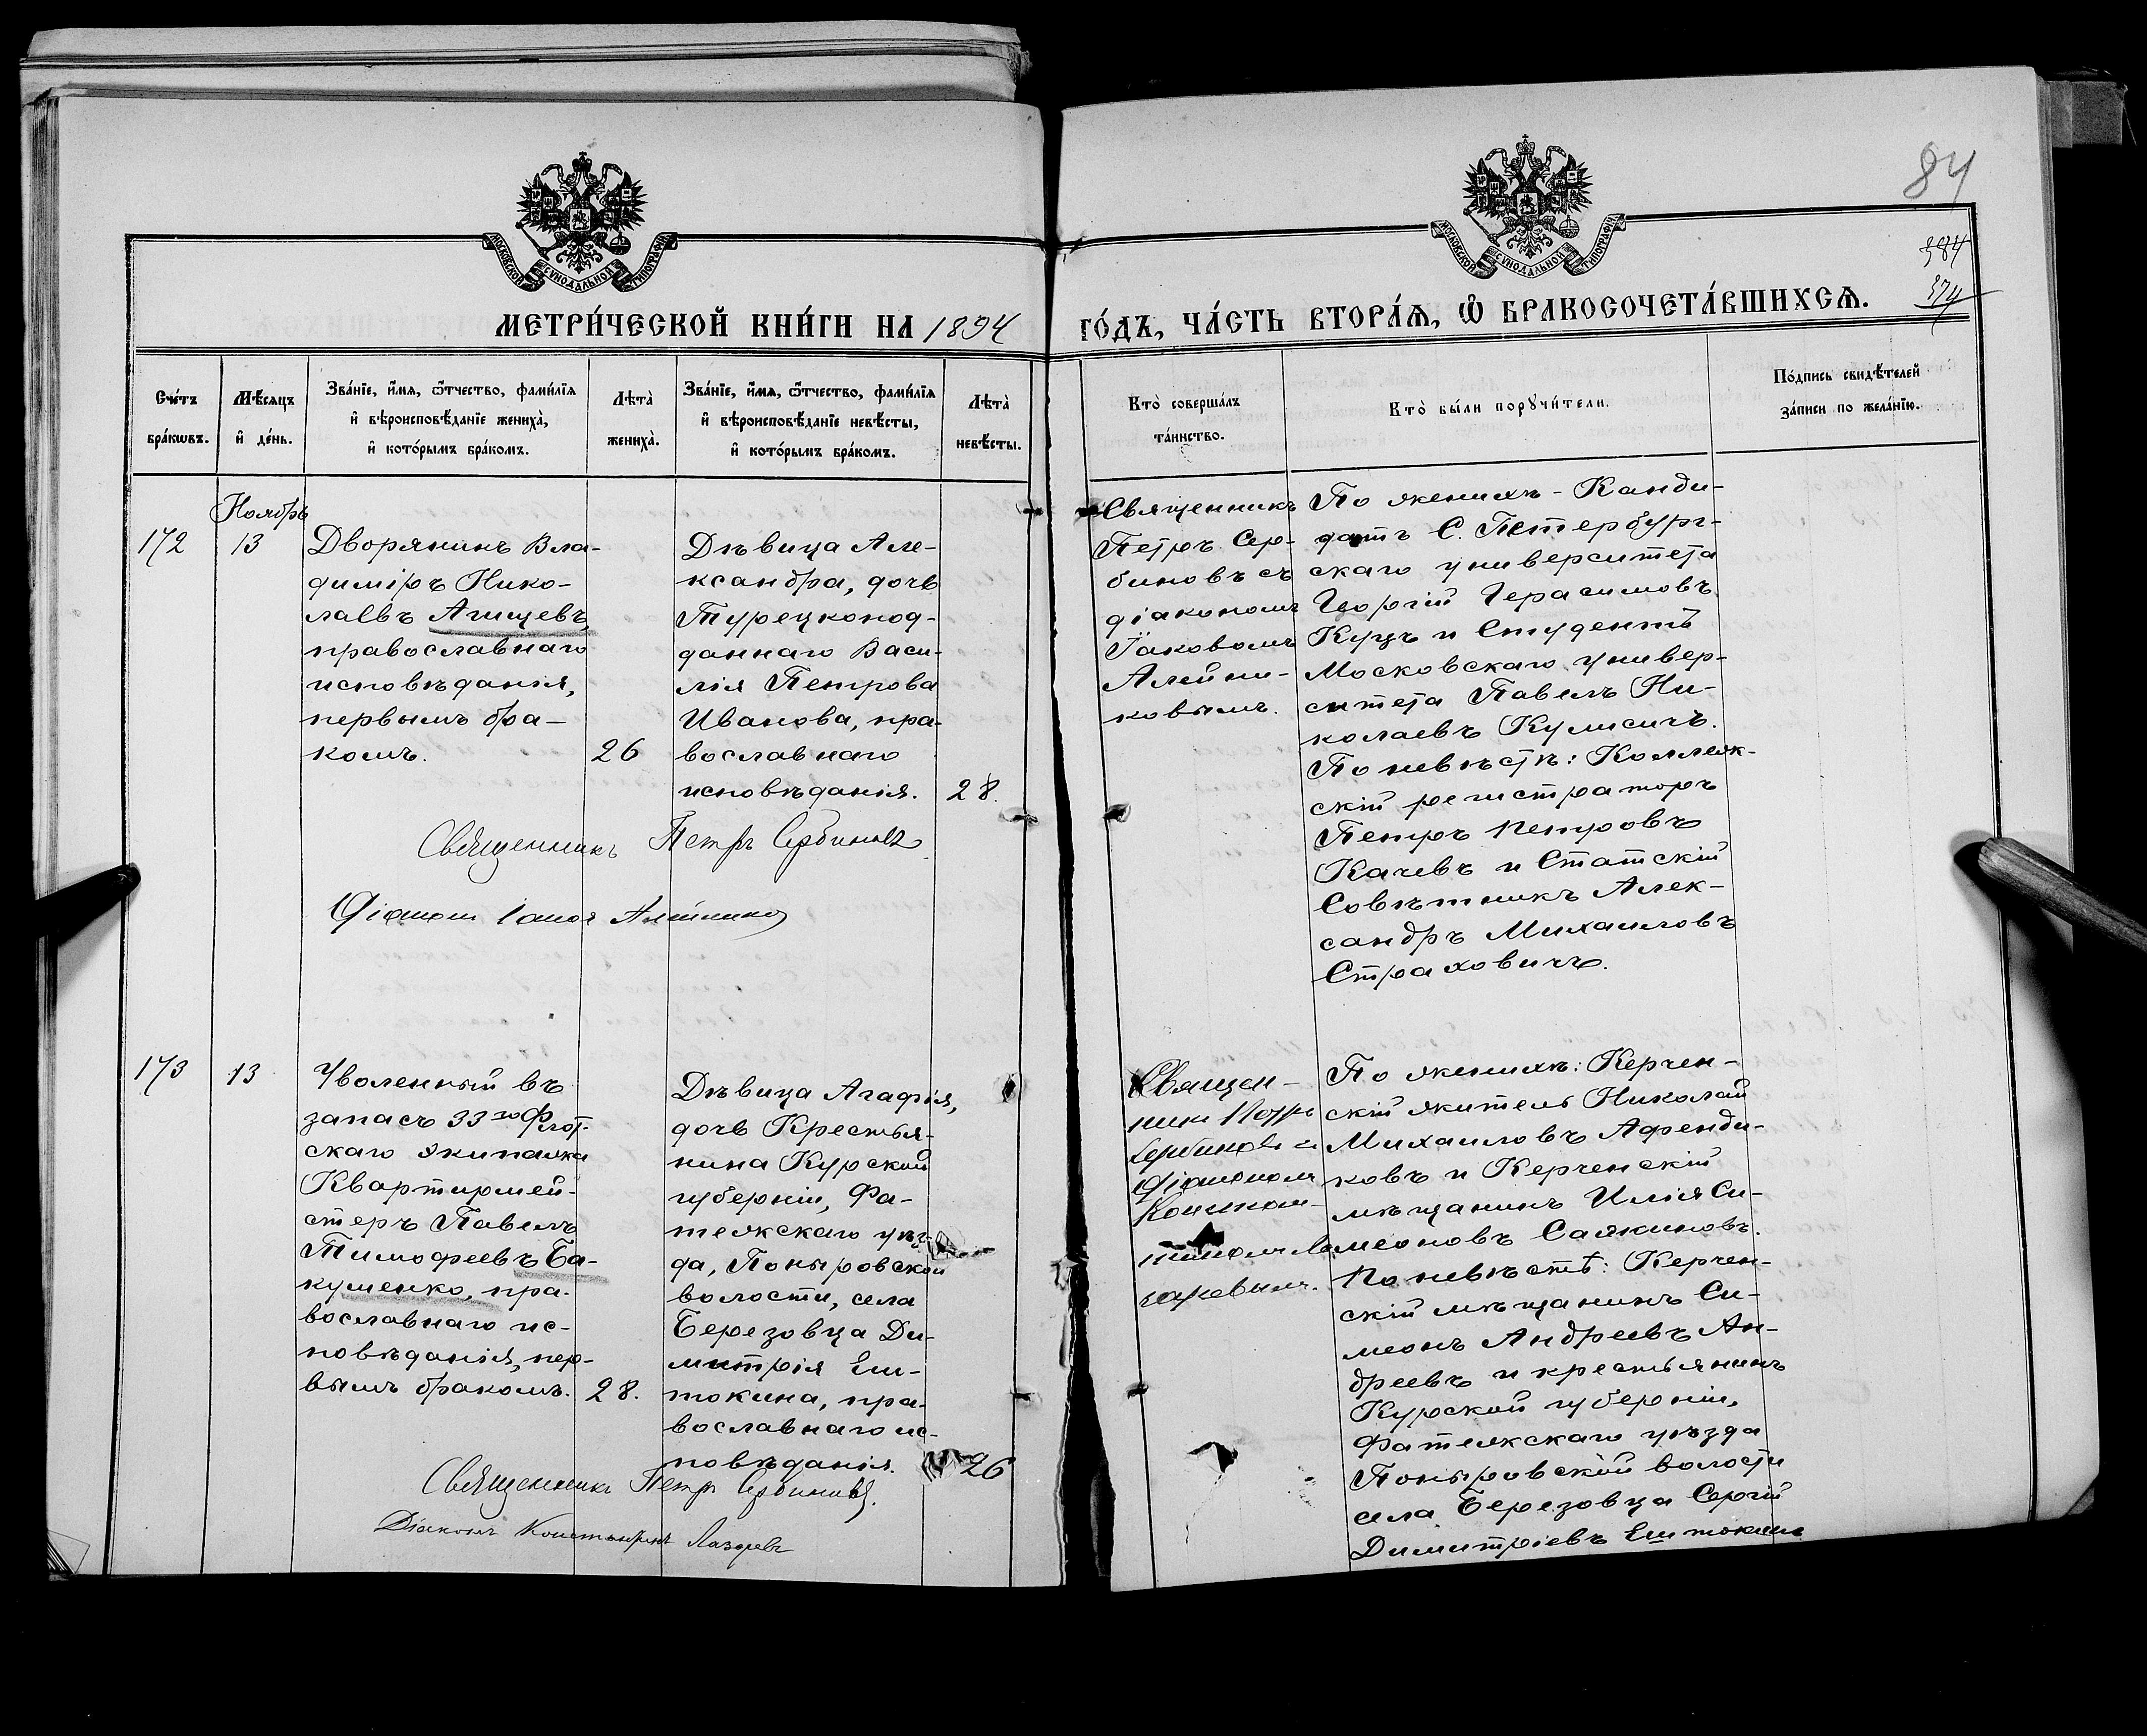 84
384
374
МОСКОВСКОЙ СѴНОДАЛЬНОЙ ТИПОГРАФІИ
МОСКОВСКОЙ СѴНОДАЛЬНОЙ ТИПОГРАФІИ
МЕТРИ́ЧЕСКОЙ КНИ́ГИ НА 1894 ГО́ДЪ, ЧА́СТЬ ВТОРА́Ѧ, Ѽ БРАКОСОЧЕТА́ВШИХСѦ.
Сче́тъ
бра́кѡвъ.
Мѣ́сяцъ
и҆ де́нь.
Зва́нїе, и҆́мя, ѻ҆́тчество, фамѝлїя
и҆ вѣроисповѣ́данїе жениха̀,
и҆ кото́рымъ бра́комъ.
Лѣта̀
жениха̀.
Зва́нїе, и҆́мя, ѻ҆́тчество, фамѝлїя
и҆ вѣроисповѣ́данїе невѣ́сты,
и҆ кото́рымъ бра́комъ.
Лѣта̀
невѣ́сты.
Кто̀ соверша́лъ
та́инство.
Кто̀ бы́ли порꙋчи́тели.
По́дпись свидѣ́телей
за́писи по жела́нїю.
Ноябрь
172
13
Дворянинъ Вла-
димiръ Нико-
лаевъ Агищевъ,
православнаго
исповѣданiя,
первымъ бра-
комъ.
26
Дѣвица Але-
ксандра, дочь
Турецкопод-
даннаго Васи-
лiя Петрова
Иванова, пра-
вославнаго
исповѣданiя.
28.
Священникъ
Петръ Сер-
биновъ съ
дiакономъ
Iаковомъ
Алейни-
ковымъ.
По женихѣ - Канди-
датъ С. Петербург-
скаго университета
Георгiй Герасимовъ
Куцъ и Студентъ
Московскаго универ-
ситета Павелъ Ни-
колаевъ Кулисичъ.
По невѣстѣ: Коллеж-
скiй регистраторъ
Петръ Петровъ
Качевъ и Статскiй
Совѣтникъ Алек-
сандръ Михаиловъ
Страховичъ.
Священникъ Петръ Сербиновъ
Дiаконъ Iаковъ Алейников
173
13
Уволенный въ
запасъ 33го Флот-
скаго экипажа
Квартирмей-
стеръ Павелъ
Тимофеевъ Ба-
куменко, пра-
вославнаго ис-
повѣданiя, пер-
вымъ бракомъ.
28.
Дѣвица Агафiя,
дочь Крестья-
нина Курской
губернiи, Фа-
тежскаго уѣз-
да, Поныровской
волости, села
Березовца Ди-
митрiя Еш-
токина, пра-
вославнаго ис-
повѣданiя.
26
Священ-
никъ Петръ
Сербиновъ съ
дiакономъ
Констан-
тиномъ Ла-
заревымъ.
По женихѣ: Керчен-
скiй житель Николай
Михаиловъ Афенди-
ковъ и Керченскiй
мѣщанинъ Илiя Си-
меоновъ Сажиновъ.
По невѣстѣ: Керчен-
скiй мѣщанинъ Си-
меонъ Андреевъ Ан-
дреевъ и крестьянинъ
Курской губернiи,
Фатежскаго уѣзда
Поныровской волости
села Березовца Сергiй
Димитрiевъ Ештокинъ
Священникъ Петръ Сербиновъ.
Дiаконъ Константинъ Лазаревъ